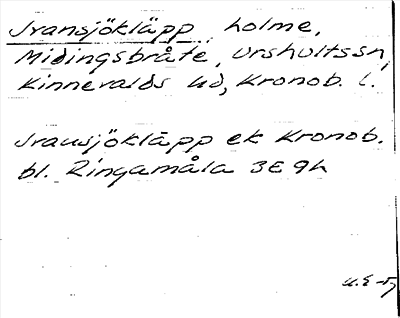 Ivansjökläpp holme,
Midingsbråte, Urshultssn,
Kinnevalds hd, Kronob. l.
Ivansjökläpp ek Kronob.
bl. Ringamåla 3E9h